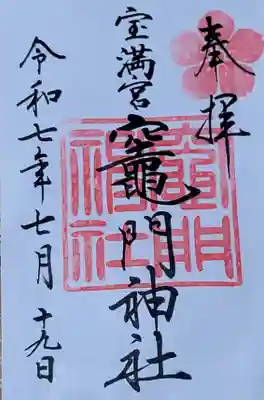 奉拝
宝満宮
竈門神社
令和七年七月十九日
竈門
神社